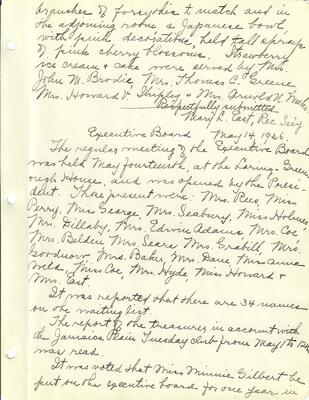 branches of forsythia to match and in
the adjoining room a Japanese bowl,
with pink decorations, held tall sprays
of pink cherry blossoms. Strawberry
ice cream & cake were served by Mrs.
John M. Brodie, Mrs. Thomas C. Greene
Mrs. Howard V. Shipley & Mrs. Arnold N. Weeks
Respectfully submitted
Mary L. East, Rec Sec'y
Executive Board May 14 1926.
The regular meeting of the Executive Board
was held May fourteenth, at the Loring-Green-
ough House, and was opened by the Presi-
dent. Those present were: Mrs. Rees, Miss
Perry, Mrs George, Mrs. Seabury, Miss Holmes
Mrs. Dillaby, Mrs. Edwin Adams, Mrs. Coe,
Mrs. Belden, Mrs. Sears, Mrs. Grabill, Mrs.
Goodnow, Mrs. Baker, Mrs. Dane, Miss Anna
Weld, Miss Coe, Mrs. Hyde, Miss Howard &
Mrs. East.
It was reported that there are 34 names
on the waiting list.
The report of the treasurer in account with
the Jamaica Plain Tuesday Club from May 1 to 12th
was read.
It was voted that Miss Minnie Gilbert be
put on the executive board for one year in